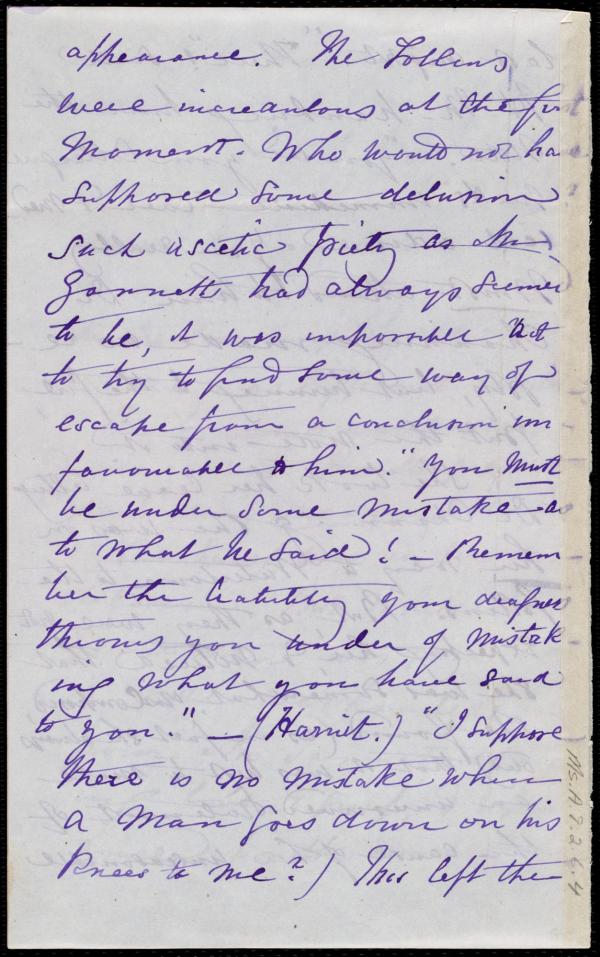 appearance. The Follens
were incredulous at the fir
moment. Who would not ha
supposed some delusion
such ascetic piety as Mr.
Gannett had always seemed
to be, it was impossible not
to try to find some way of
escape from a conclusion un
favourable to him. "You must
be under some mistake as
to what he said! — Remem
ber the liability your deafness
throws you under of mistak
ing what you have said
to you." — (Harriet.) "I suppose
there is no mistake when
a man goes down on his
knees to me?) This left the
Ms.A.7.2.6.4